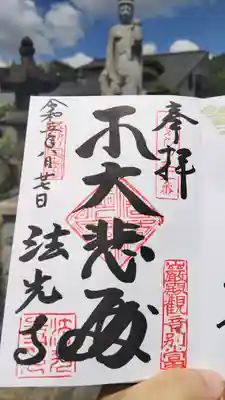 奉拝
大悲殿
巖殿觀音別當
令和五年八月廿七日
法光寺